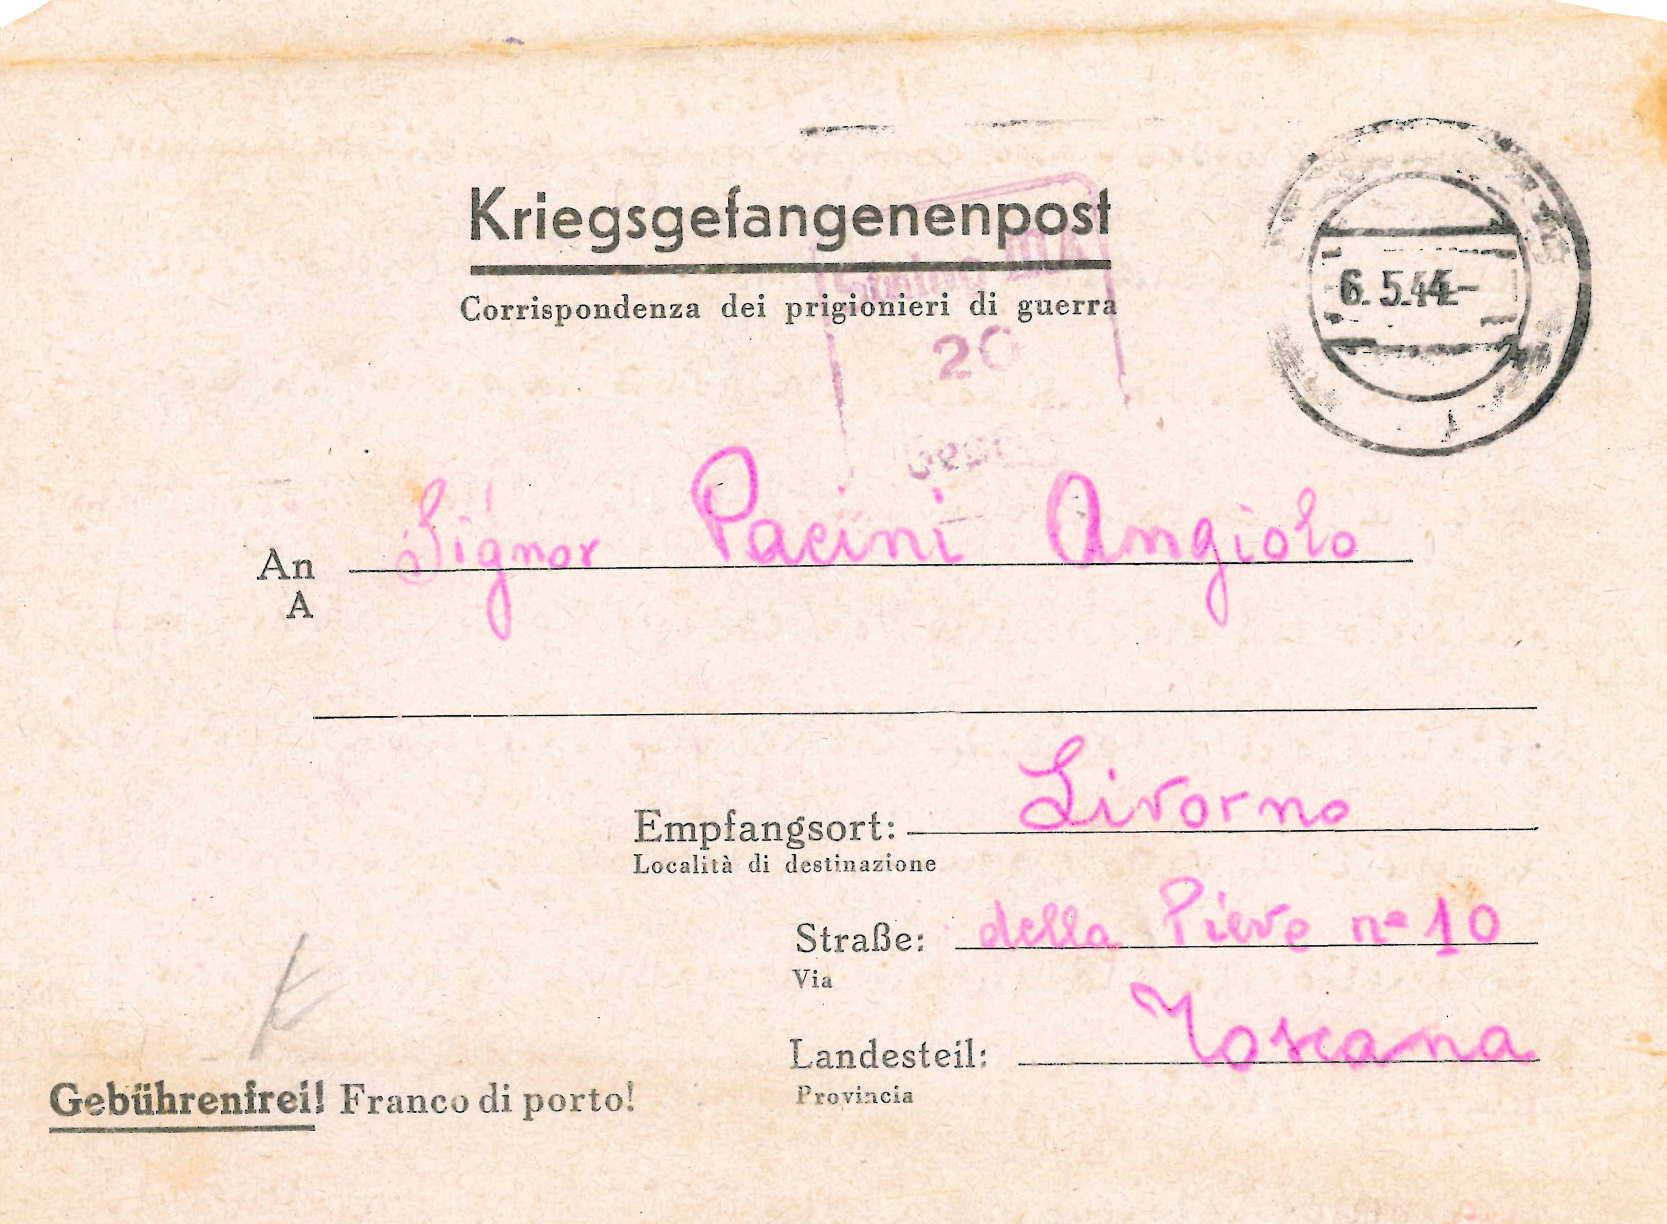 Kriegsgefangenenpost
Corrispondenza dei prigionieri di guerra
6.5.44.-
20
An Signor Pacini Angiolo
A
Empfangsort: Livorno
Località di destinazione
Straße: della Pieve nº 10
Via
Landesteil: Toscana
Provincia
Gebührenfrei! Franco di porto!